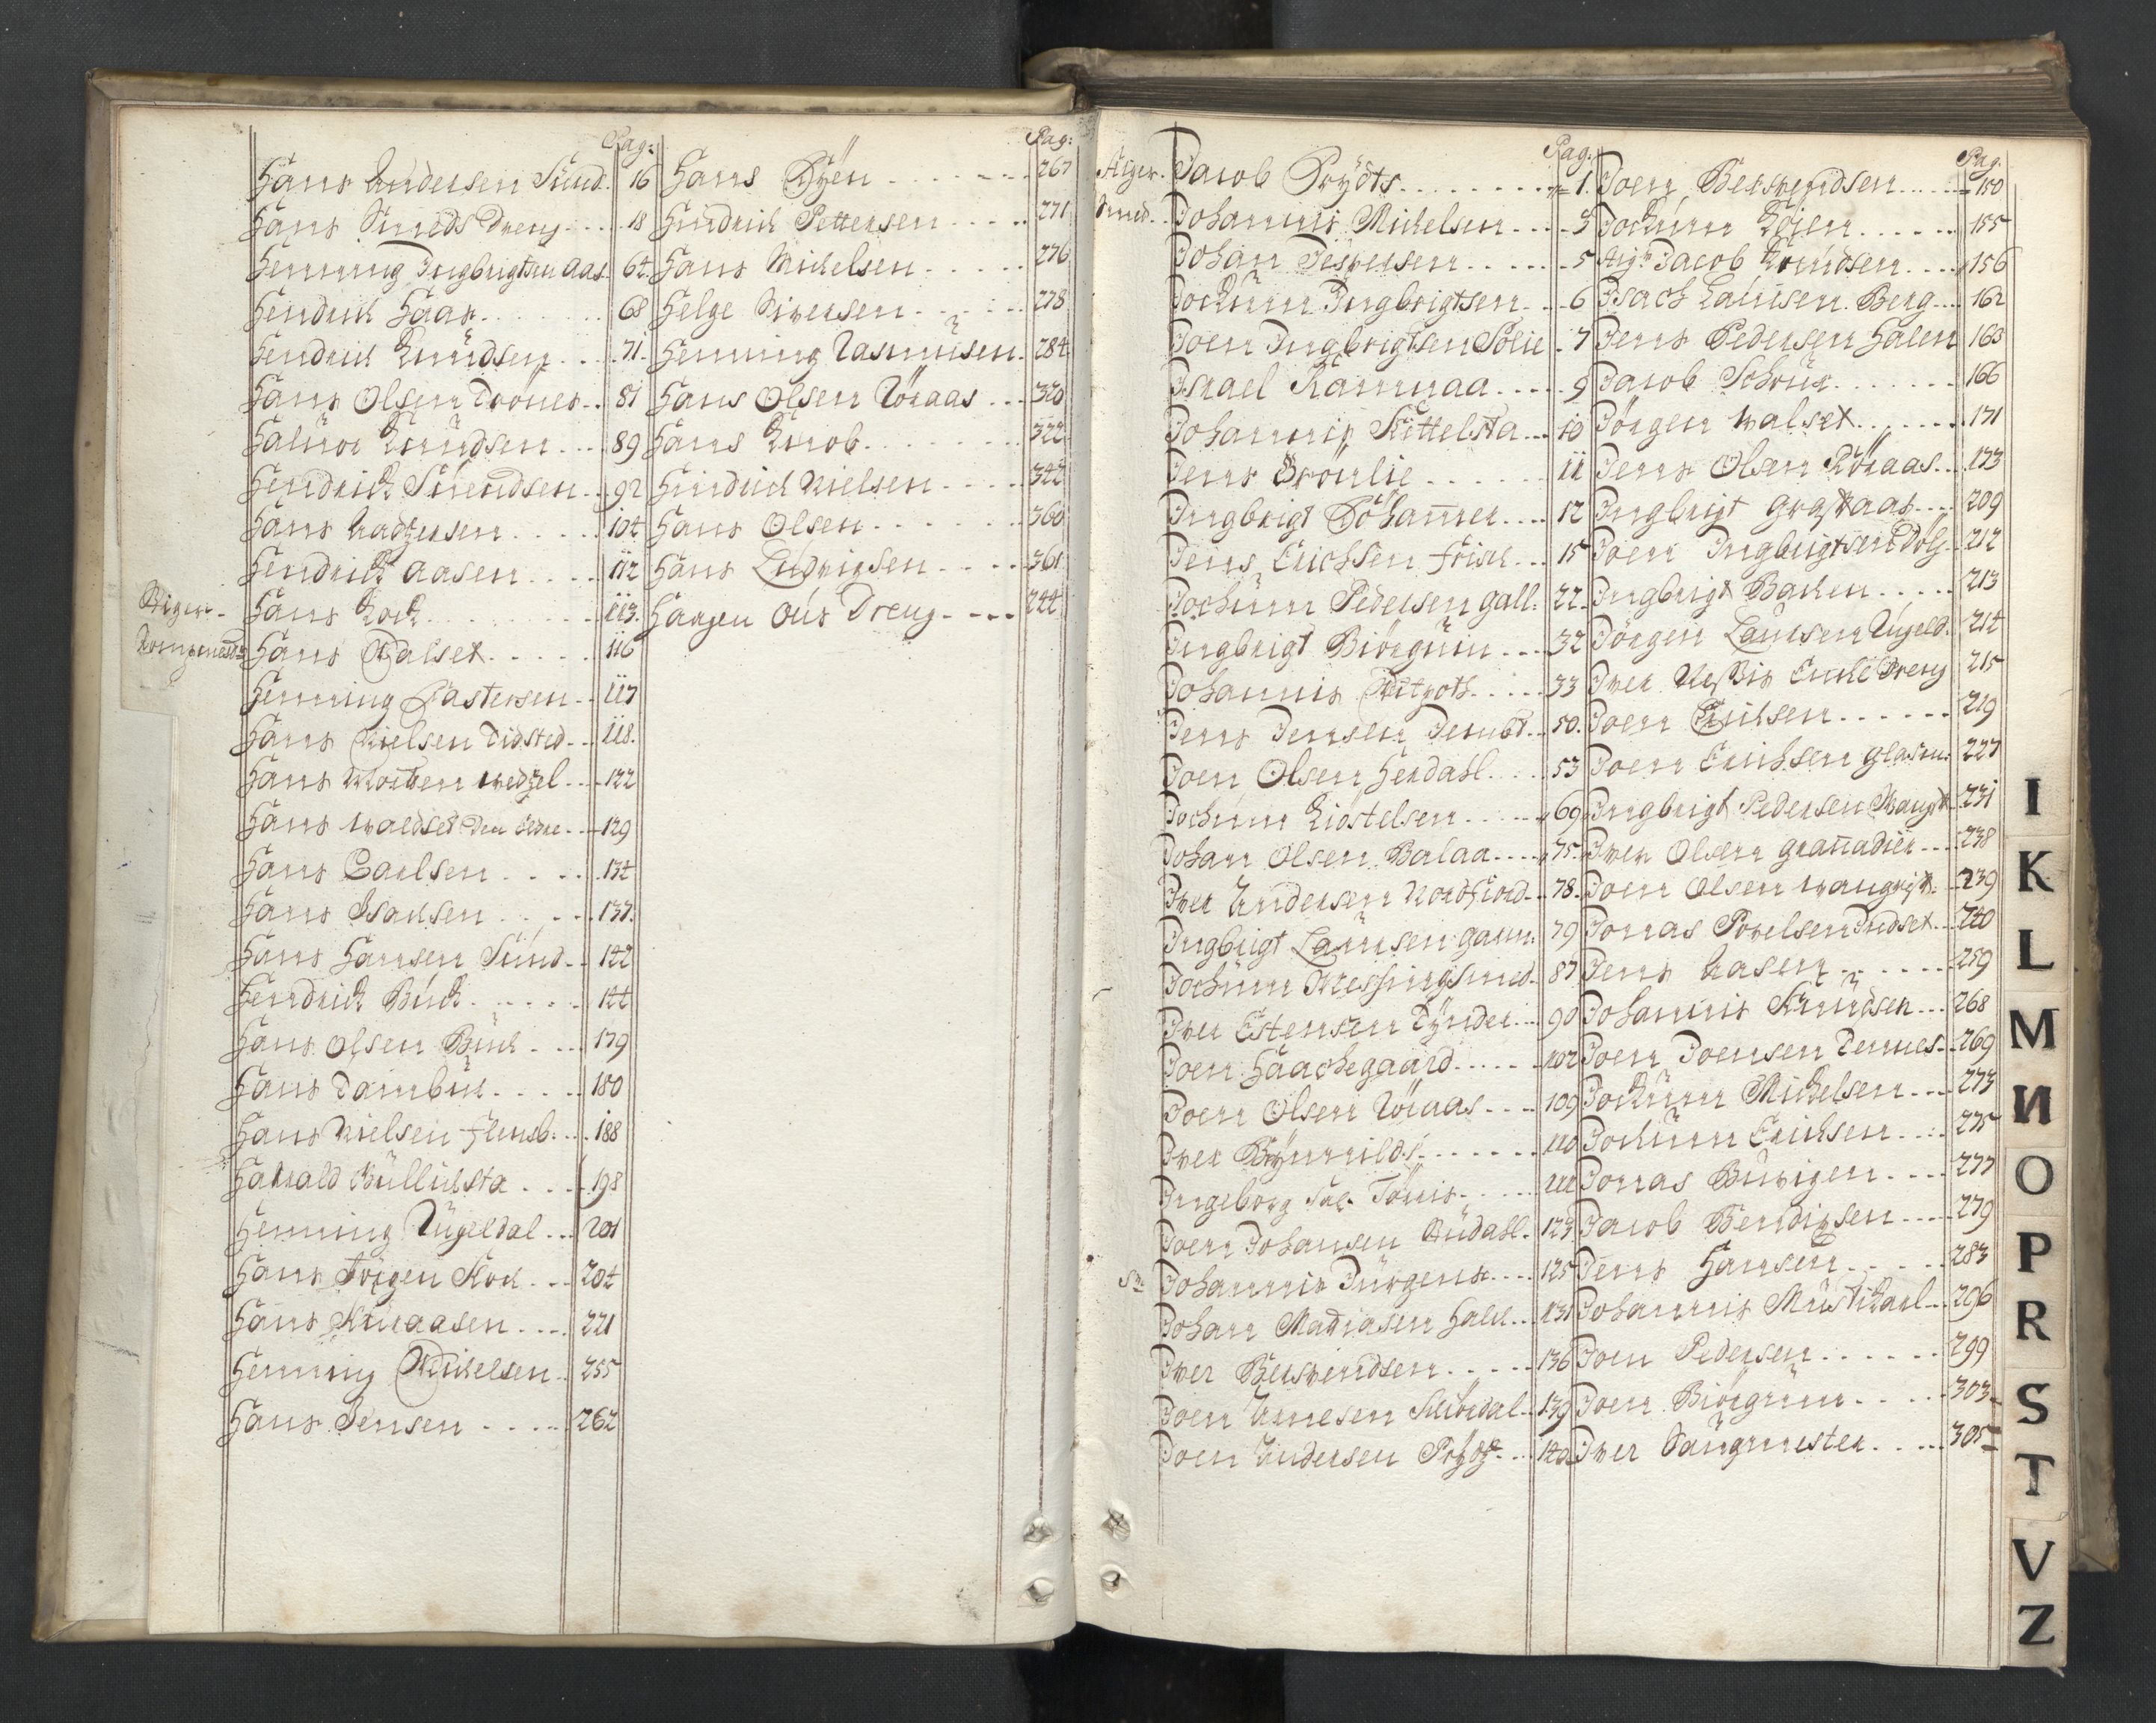 Pag:
Hans Andersen Sund. 16
Hans Smeds Dreng 18
Henning Ingbrigtsen Aas. 64
Hendrich Haar 68
Hendrich Knudsen 71
Hans Olsen Trönes 81
Halvor Knudsen 89
Hendrich Svendsen 92
Hans 104
Hendrich Aasen 112
Hans Koch 113
Hans Walset 116
Henning Castensen 117
Hans Nielsen Tidsted 118
Hans Morten Wedzel 122
Hans Waldset den Eldre 129
Hans Carlsen 134
Hans Isachsen 137
Hans Hansen Sund 142
Hendrich Buch 144
Hans Olsen Buch 179
Hans Dambur 180
Hans Nielsen Flensb: 188
Harrald Bullichsta 198
Henning Rugeldal 201
Hans Jörgen Kock 204
Hans Kuraasen 221
Henning Michelsen 255
Hans Jensen 262
Pag:
Hans Thyen 267
Hindrich Pettersen 271
Hans Michelsen 276
Helge Siversen 278
Henning Rasmusen 284
Hans Olsen Röraas 320
Hans Knob 322
Hindrich Nielsen 342
Hans Olsen 360
Hans Ludvigsen 361
Hangen Ous Dreng 244
Pag:
Jacob Prydts 1
Smed. Johannis Michelsen 3
Johan Jespersen 5
Jochum Ingbrigtsen 6
Joen Ingbrigtsen Solie 7
Israel Kammaa 9
Johannis Kittelsta 10
Jens Broulie 11
Ingbrigt Döhammer 12
Jens Erichsen Frisch 15
Jochum Pedersen Gall: 22
Ingbrigt Biörgum 32
Johannis Ditzoth 33
Jens Jensen Jembt 50
Joen Olsen Herdahl 53
Jochum Kiöstelsen 69
Johan Olsen Balaa 75
Iver Andersen Nordfiord 78
Ingbrigt Laursen Gaun: 79
Jochum Messingsmed 87
Iver Estensen Tynder 90
Joen Haachegaard 102
Joen Olsen Röraas 109
Iver Brynnilds: 110
Ingeborg Sal. Tönis 111
Joen Johansen Budahl 123
Johannis Jürgens 125
Johan Madiasen Hald 131
Iver Bersvendsen 136
Joen Arnesen Stiördal 139
Joen Andersen Prydz 140
Pag.
Joen Bersvendsen 150
Jochum Koien 155
Jacob Knudsen 156
Isach Larsen Berg 162
Jens Pedersen Halen 163
Jacob Schrus 166
Jörgen Walset 171
Jens Olsen Röraas 173
Ingbrigt Grastaas 209
Joen Ingbrigtsen Dölg 212
Ingbrigt Backen 213
Jörgen Laursen Rugeld. 214
Iver Dreng 215
Joen Erichsen 219
Joen Erichsen Glasm: 227
Ingbrigt Pedersen Waugst 231
Iver Olsen Granadier 238
Joen Olsen Waugst 239
Jonas Povelsen Indset 240
Jens Aasen 259
Johannis Knudsen 268
Joen Joensen Tennes 269
Jochum Michelsen 273
Jochum Erichsen 275
Jonas Burigen 277
Jacob Bendixsen 279
Jens Hansen 283
Johannis Mustikarl 296
Joen Pedersen 299
Joen Biörgum 303
Iver Sangmester 305
I
K
L
M
N
O
P
R
S
T
V
Z